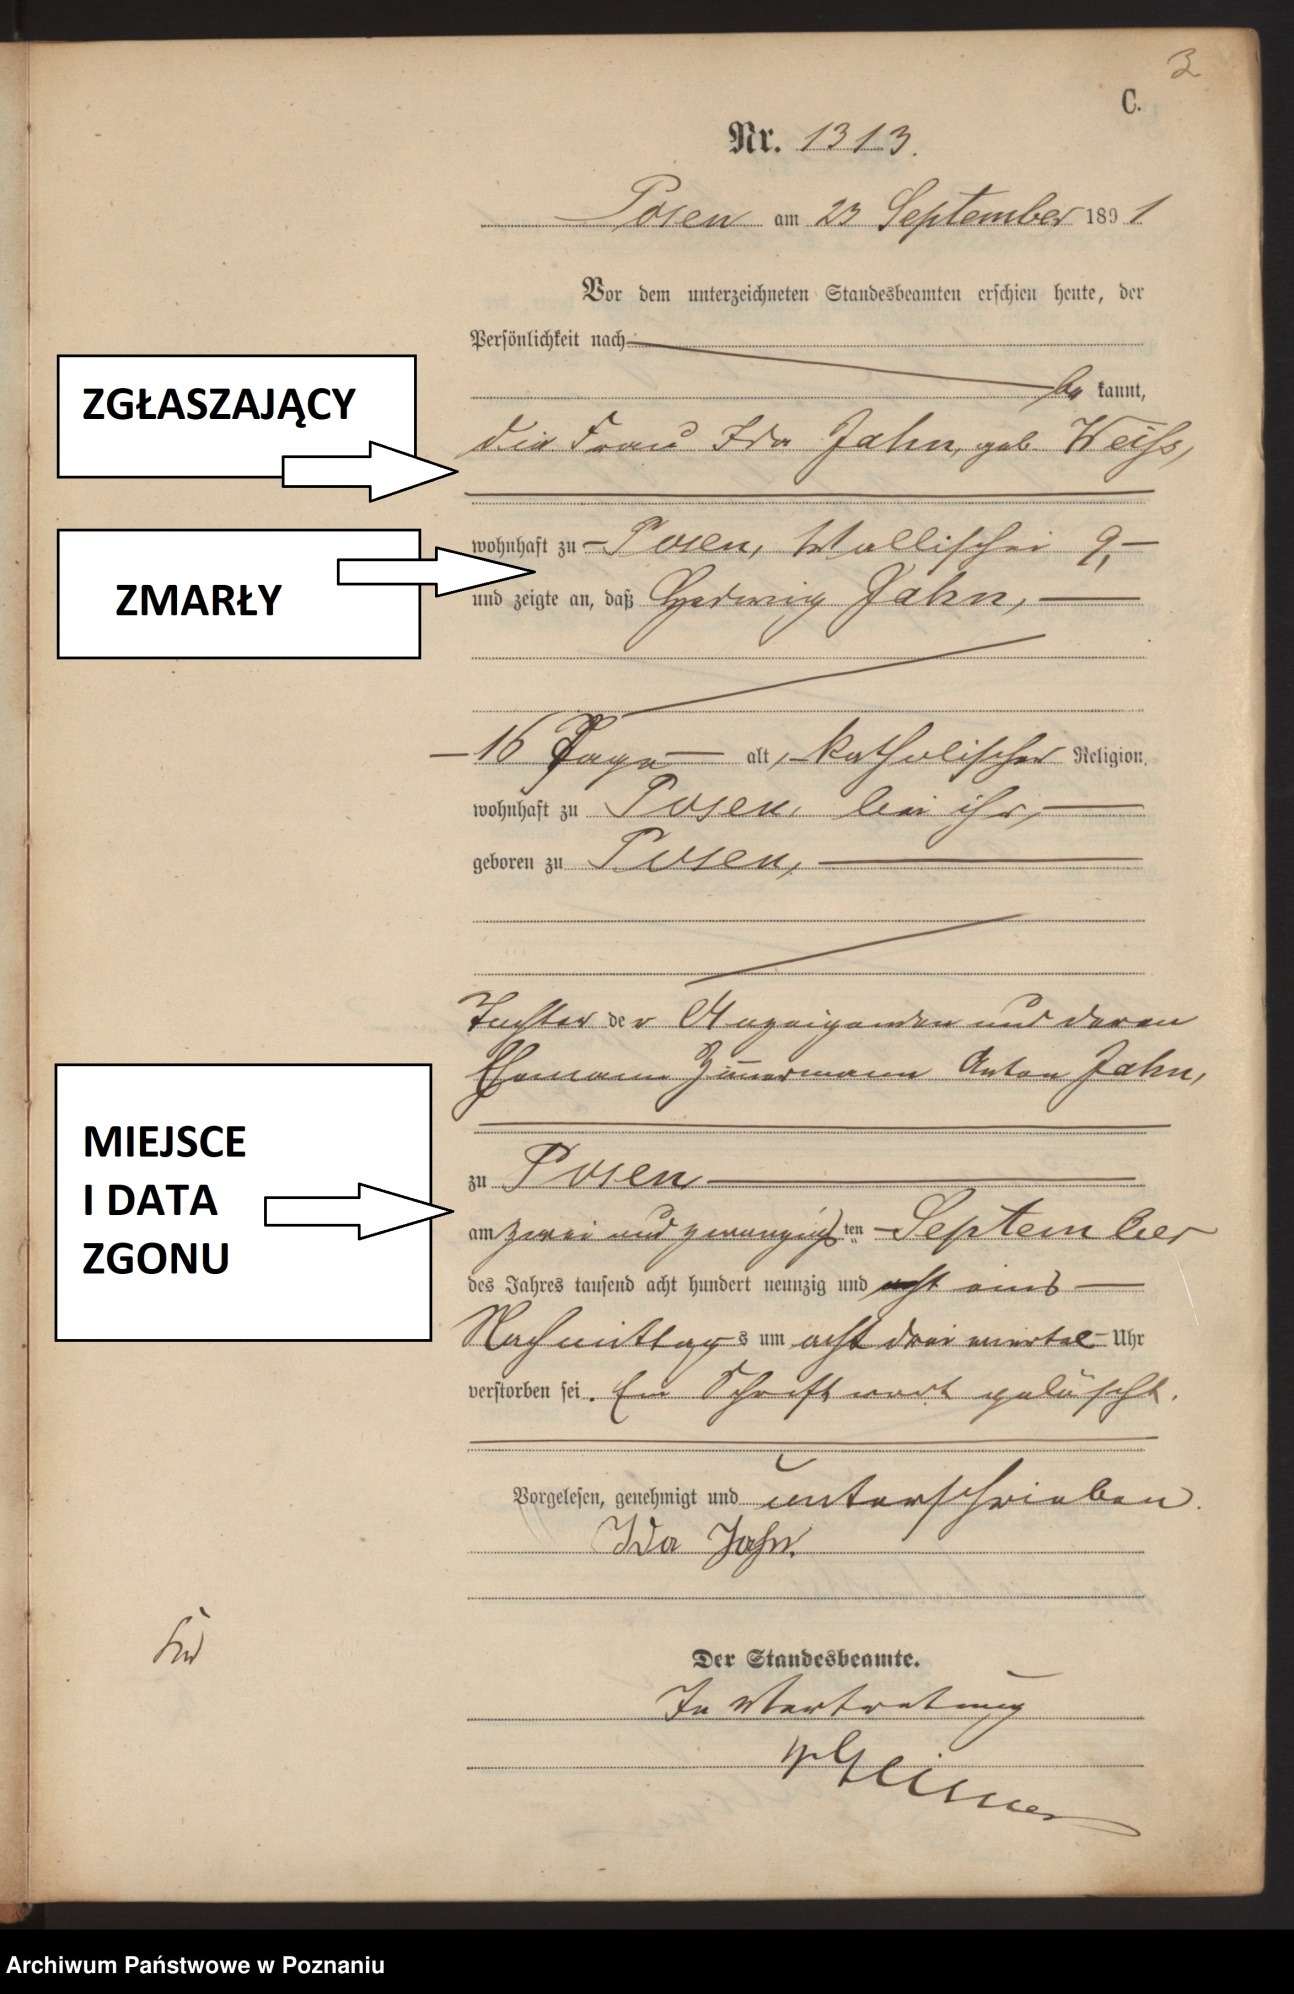 3
C.
Nr. 1313.
Posen am 23 September 1891
Vor dem unterzeichneten Standesbeamten erschien heute, der
Persönlichkeit nach
be kannt,
ZGŁASZAJĄCY
die Frau Ida Jahn, geb. Weiss,
wohnhaft zu Posen, Wallischei 9,
ZMARŁY
und zeigte an, daß Hedwig Jahn,
16 Tage alt, katholischer Religion,
wohnhaft zu Posen, bei ihr,
geboren zu Posen,
Tochter der Anzeigenden und deren
Ehemann Zim̄ermann Anton Jahn,
MIEJSCE
I DATA
ZGONU
zu Posen
am zwei und zwanzigsten September
des Jahres tausend acht hundert neunzig und acht eins
Nachmittags um acht drei viertel Uhr
verstorben sei. Ein Schriftwort gelöscht.
Vorgelesen, genehmigt und unterschrieben.
Ida Jahn.
Der Standesbeamte.
In Vertretung
Archiwum Państwowe w Poznaniu